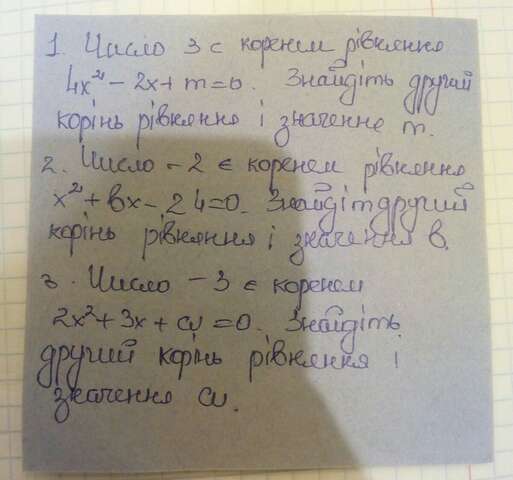 1. Число 3 є коренем рівняння
4x² - 2x + m = 0. Знайдіть другий
корінь рівняння і значення m.
2. Число - 2 є коренем рівняння
x² + вx - 24 = 0. Знайдіть другий
корінь рівняння і значення в.
3. Число - 3 є коренем
2x² + 3x + а = 0. Знайдіть
другий корінь рівняння і
значення а.